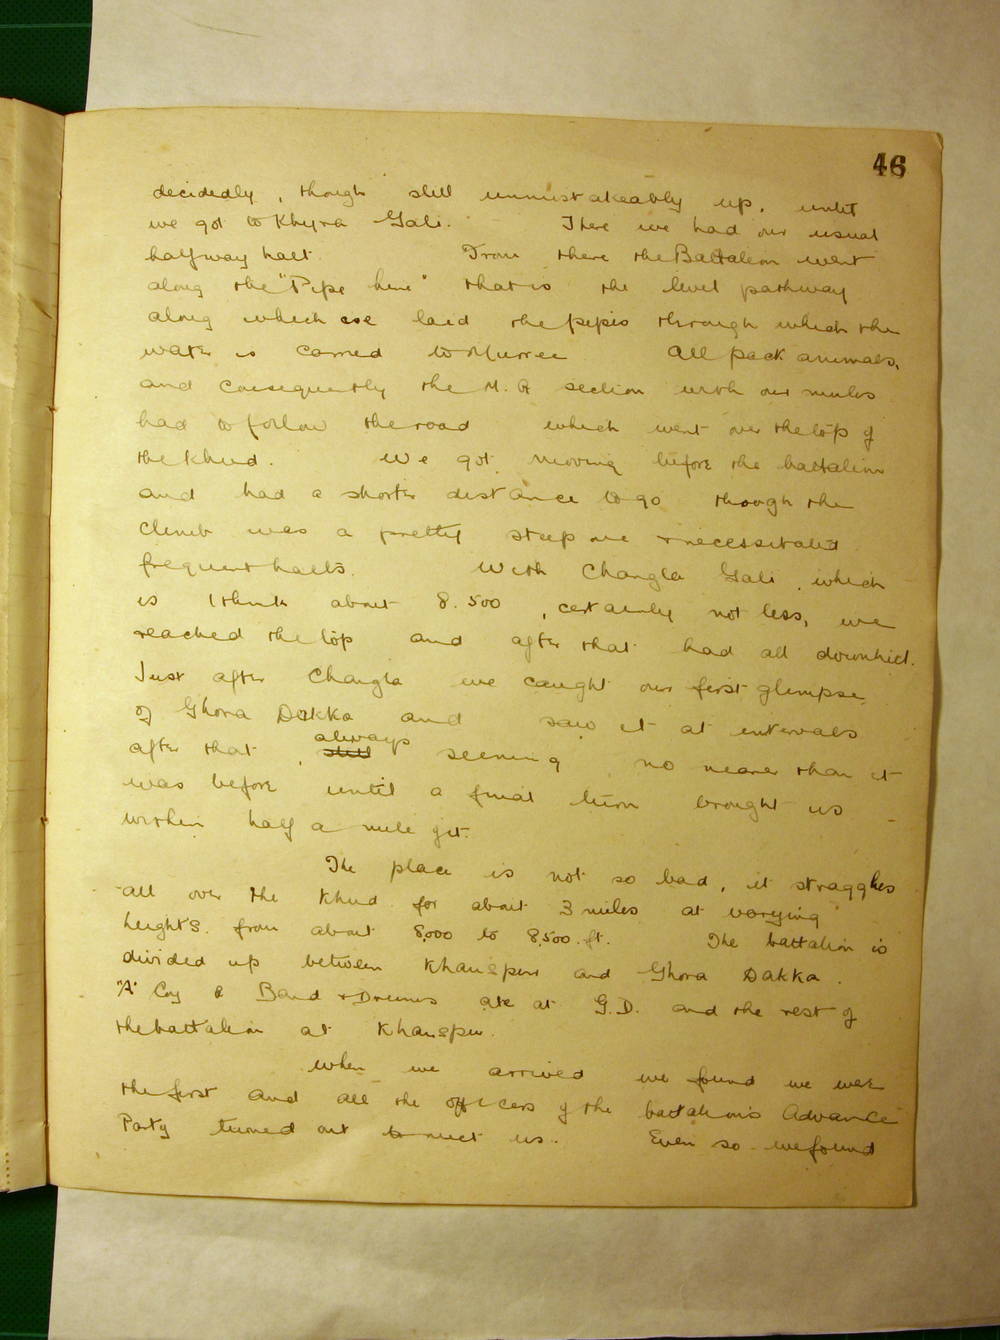 46
decidedly, though still unmistakeably up, until
we got to Khyra Gali. There we had our usual
halfway halt. From there the Battalion went
along the "Pipe line" that is the level pathway
along which are laid the pipes through which the
water is carried to Murree All pack animals,
and consequently the M. G section with our mules
had to follow the road which went over the top of
the khud. We got moving before the battalion
and had a shorter distance to go though the
climb was a pretty steep one & necessitated
frequent halts. With Changla Gali, which
is I think about 8.500, certainly not less, we
reached the top and after that had all downhill.
Just after Changla we caught our first glimpse
of Ghora Dakka and saw it at intervals
after that, still always seeming no nearer than it
was before until a final turn brought us
within half a mile of it.
The place is not so bad, it straggles
all over the Khud for about 3 miles at varying
heights. from about 8,000 to 8,500. ft. The battalion is
divided up between Khanspur and Ghora Dakka.
"A" Coy & Band & Drums are at G.D. and the rest of
the battalion at Khanspur.
When we arrived we found we were
the first and all the officers of the battalions Advance
Party turned out to meet us. Even so we found